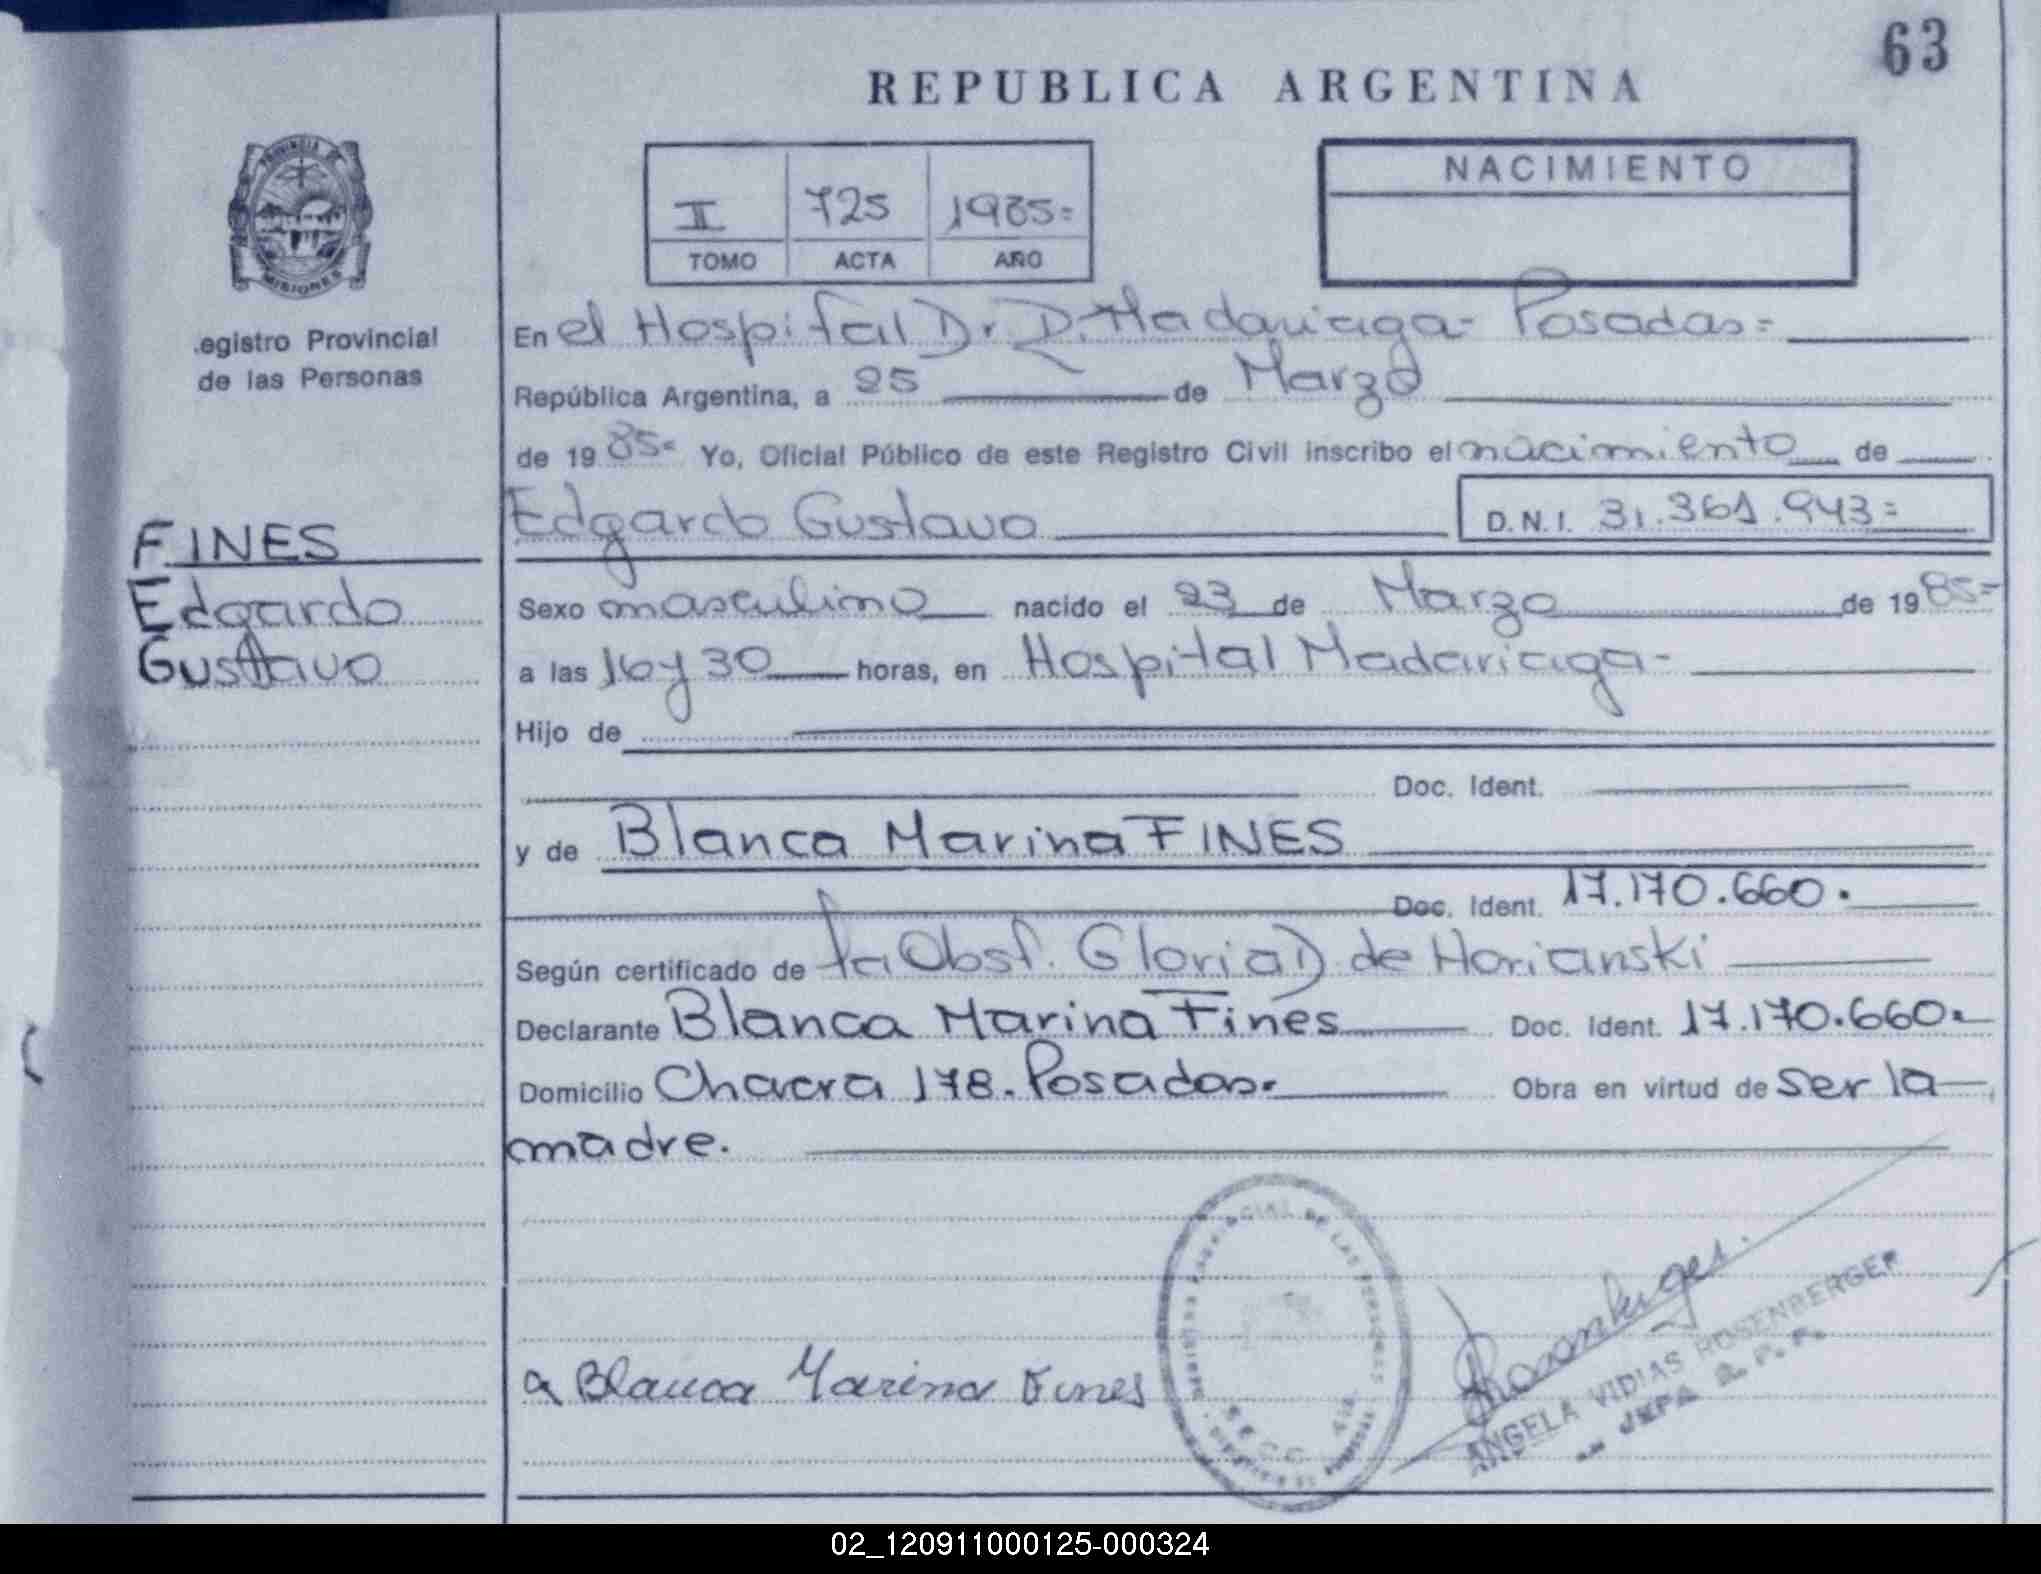 63
REPUBLICA ARGENTINA
PROVINCIA DE
MISIONES
II 725 1985=
TOMO ACTA AÑO
NACIMIENTO
.egistro Provincial
de las Personas
FINES
Edgardo
Gustavo
En el Hospital Dr. R. Madariaga - Posadas=
República Argentina, a 25 de Marzo
de 19 85= Yo, Oficial Público de este Registro Civil inscribo el nacimiento de
Edgardo Gustavo D.N.I. 31.361.943=
Sexo masculino nacido el 23 de Marzo de 19 85=
a las 16 y 30 horas, en Hospital Madariaga-
Hijo de
Doc. Ident.
y de Blanca Marina FINES
Doc. Ident. 17.170.660.
Según certificado de la Obst. Gloria D de Horianski
Declarante Blanca Marina Fines Doc. Ident. 17.170.660.
Domicilio Chacra 178. Posadas. Obra en virtud de ser la
madre.
Blanca Marina Fines
Rosenberger
ANGELA VIDIAS ROSENBERGER
JEFA
02_120911000125-000324